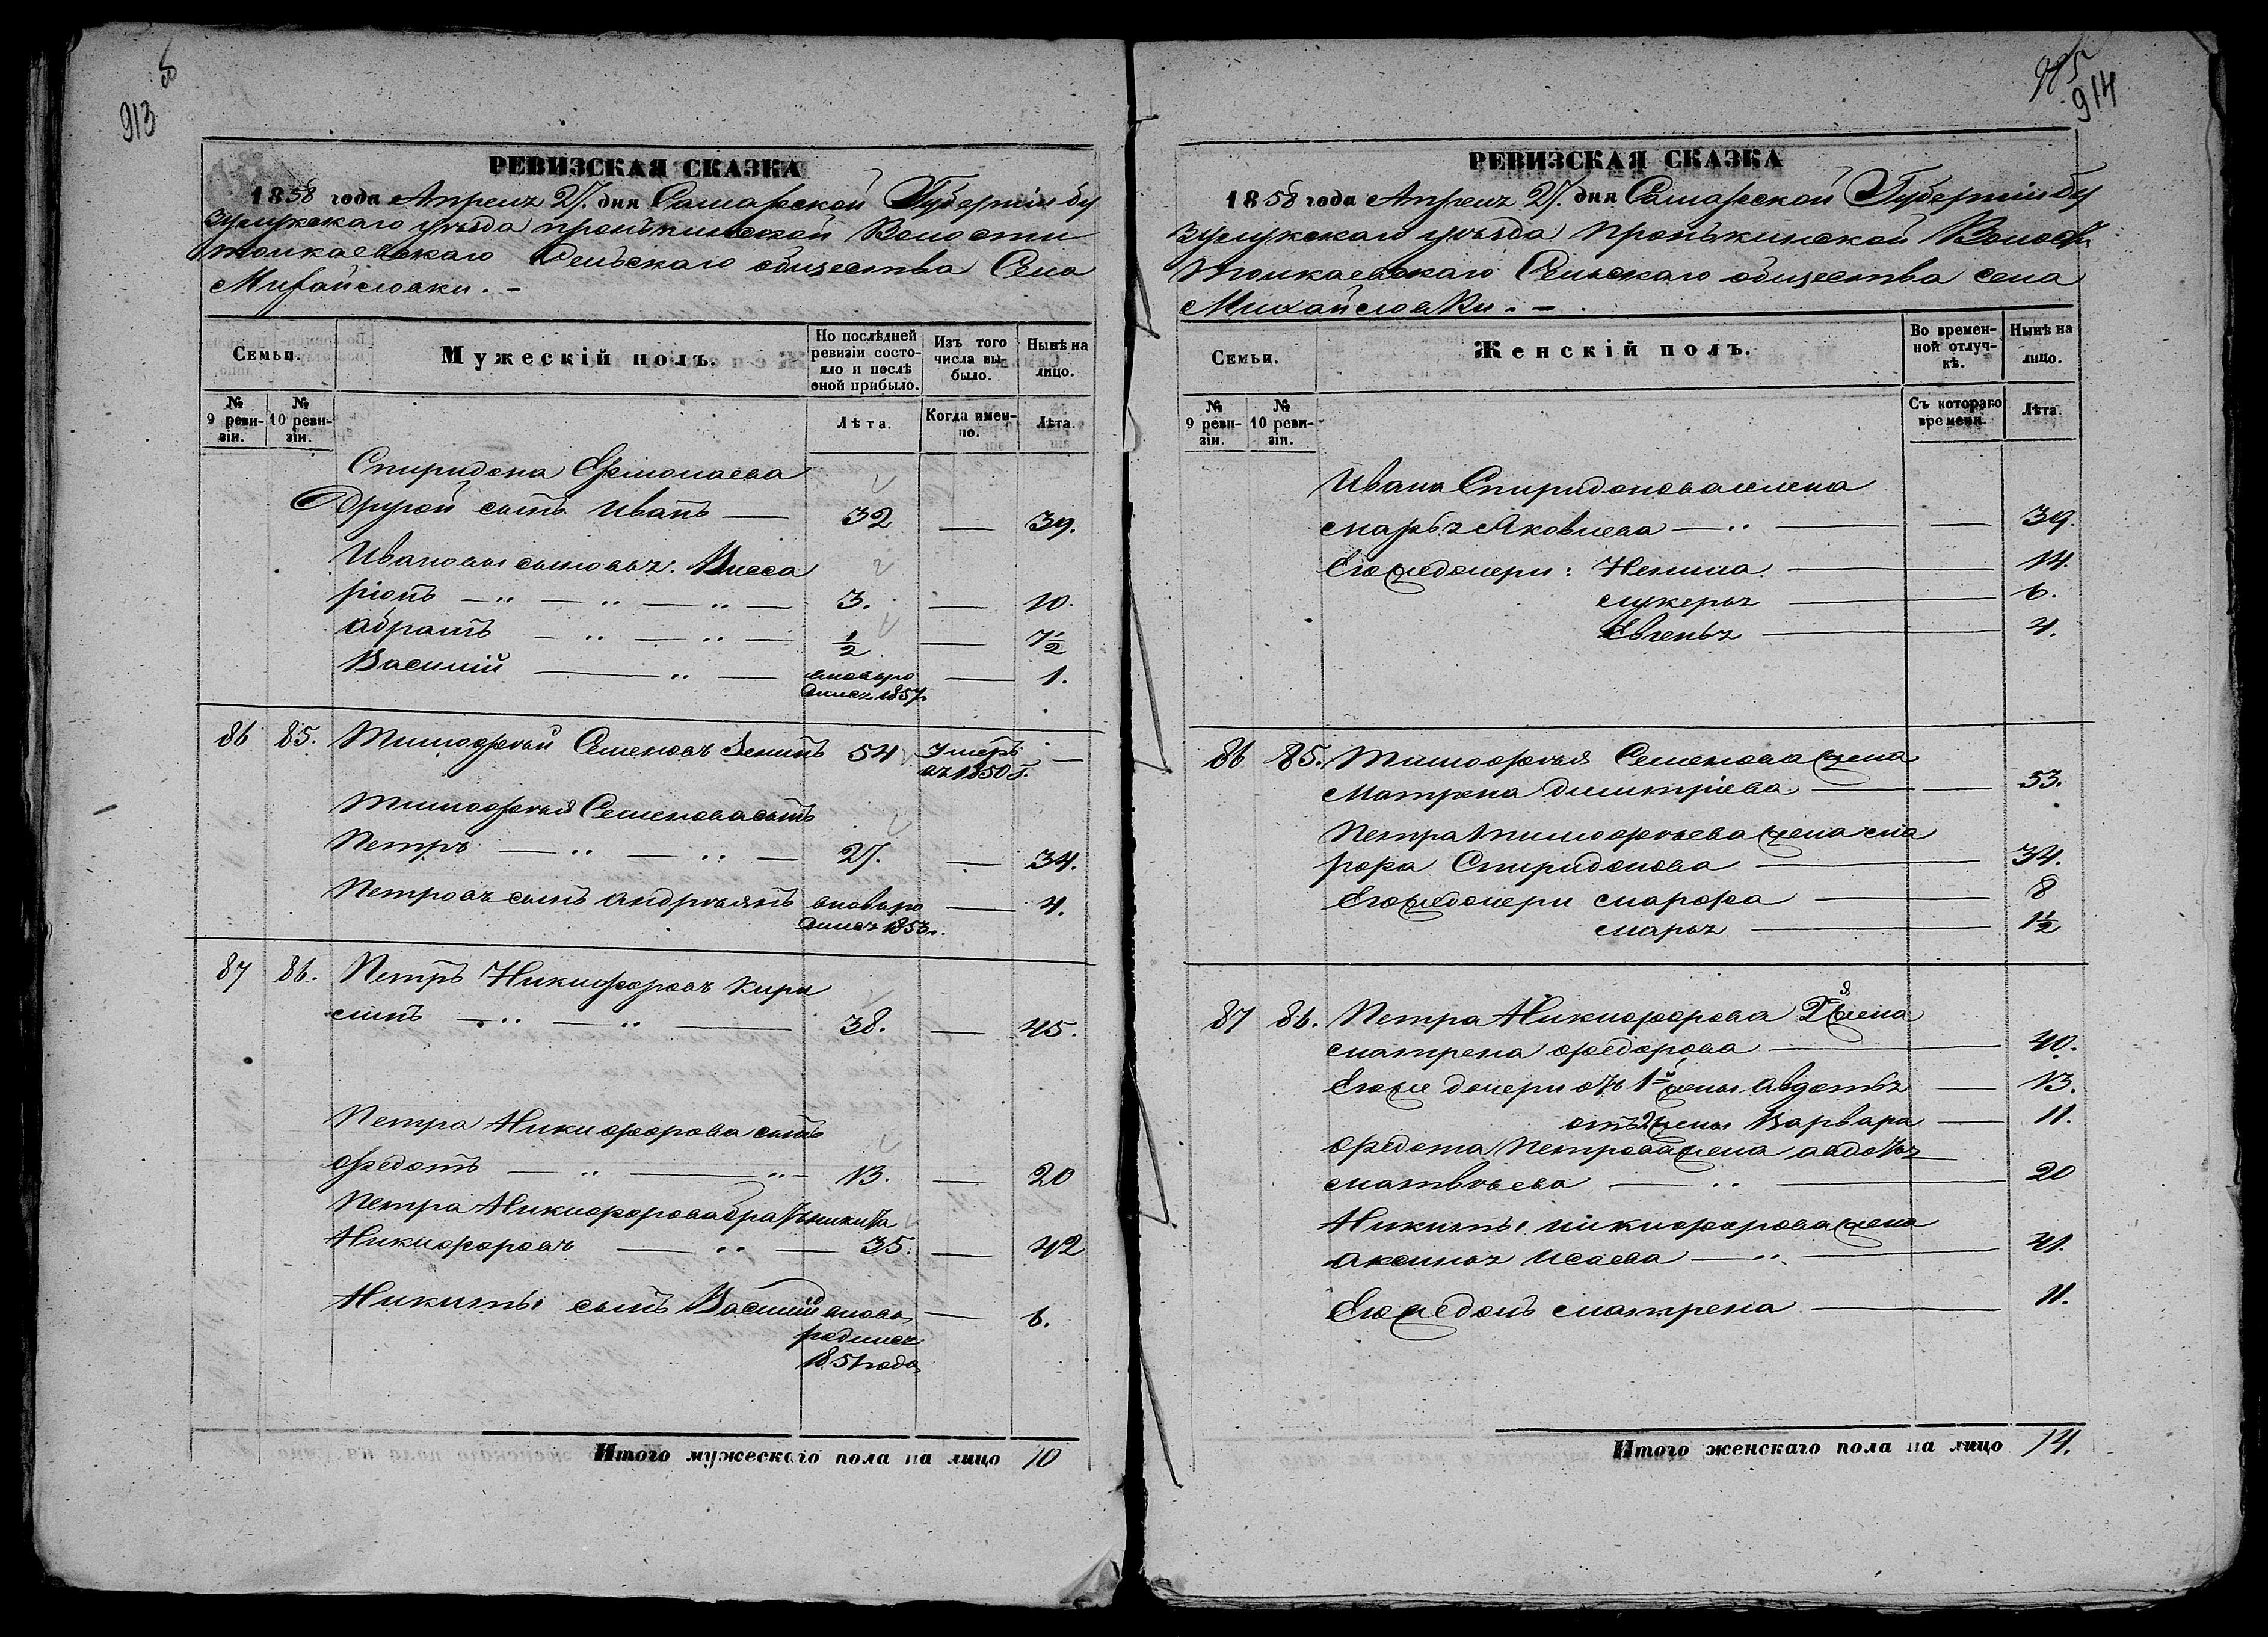 913
РЕВИЗСКАЯ СКАЗКА
1858 года Апреля 27. дня Самарской Губернiи Бу
зулукскаго уѣзда Пронькинской Волости
Толкаевскаго Сельскаго общества Села
Михайловки. -
Семьи.
Мужескiй полъ.
По послѣдней ревизiи состояло и послѣ оной прибыло.
Изъ того числа выбыло.
Нынѣ на лицо.
№ 9 ревизiи.
№ 10 ревизiи.
Лѣта.
Когда именно.
Лѣта.
Спиридона
Другой сынъ Иванъ — 32 — 39.
Ивановы сыновья: Висса
рiонъ — 3. — 10.
Абрамъ — 1/2 — 7 1/2
Василий — вновь ро
дился 1857 — 1.
86 85. Тимофѣй Семеновъ 54 Умеръ
въ 1850 г. —
Тимофѣя Семенова сынъ
Петръ — 27. — 34.
Петровъ сынъ Андрѣянъ вновь ро — 4.
дился 1853 г.
87 86. Петръ Никифоровъ Кири
линъ — 38. — 45.
Петра Никифорова сынъ
Федотъ — 13. — 20
Петра Никифорова братъ Никита
Никифоровъ — 35. — 42
Никиты сынъ Василий вновь — 6.
родился
1851 года
Итого мужескаго пола на лицо 10
914
РЕВИЗСКАЯ СКАЗКА
1858 года Апреля 27. дня Самарской Губернiи Бу
зулукскаго уѣзда Пронькинской Волост
Толкаевскаго Сельскаго общества села
Михайловки. -
Семьи.
Женскiй полъ.
Во временной отлучкѣ.
Нынѣ на лицо.
№ 9 ревизiи.
№ 10 ревизiи.
Съ котораго времени.
Лѣта.
Ивана Спиридонова жена
Марья Яковлева — — 39.
Его же дочери: Ненила — 14.
Лукерья — 6.
Евгенья — 4.
86 85. Тимофѣя Семенова жена
Матрена Дмитрiева — 53.
Петра Тимофѣева жена Ма
рфа Спиридонова — 34.
Его же дочери Марфа — 8
Марья — 1 1/2
87 86. Петра Никифорова 2я жена
Матрена Федорова — 40.
Его же дочери отъ 1й жены Авдотья — 13.
отъ 2 жены Варвара — 11.
Федота Петрова жена Авдотья
Матвѣева — 20
Никиты Никифорова жена
Аксинья Исаева — 41.
Его же дочь Матрена — 11.
Итого женскаго пола на лицо 14.